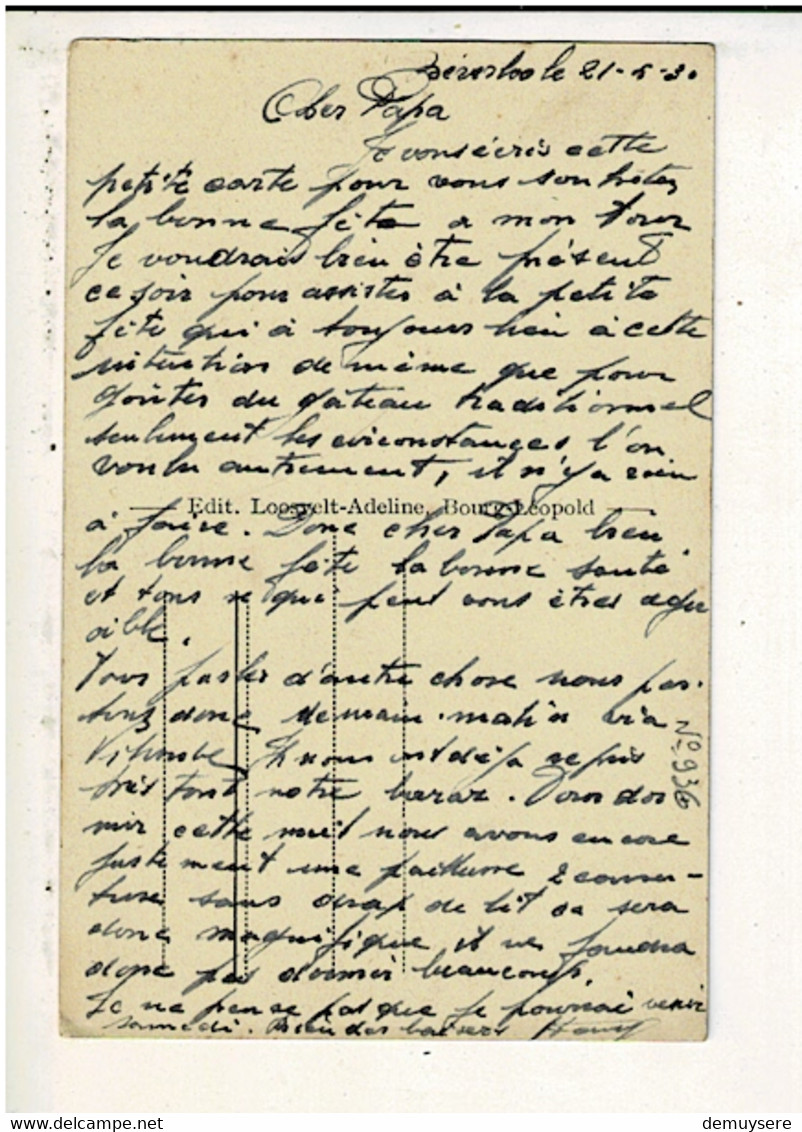 Béverloo le 21-5-30
Cher Papa
Je vous écris cette
petite carte pour vous souhiter
la bonne fête a mon tour
Je voudrais bien être présent
ce soir pour assister à la petite
fête qui à toujours lieu à cette
intention de même que pour
goûter du gâteau traditionnel
seulement les circonstances l'on
voulu autrement, il n'y a rien
Edit. Loosvelt-Adeline, Bourg-Léopold
à faire. Donc cher Papa bien
la bonne fête la bonne santé
et tous ce qui peut vous êtres agré
able.
Pour parler d'autre chose nous par-
tons donc demain matin via
Vilvorde Il nous ont déja repris
très tout notre bazar. Pour dor
mir cette nuit nous avons encore
justement une paillasse 2 couver-
tures sans drap de lit ce sera
donc magnifique il ne faudra
donc pas dormir beaucoup.
Je ne pense pas que je pourrai venir
samedi. Bien des baisers
No 936
demuysere